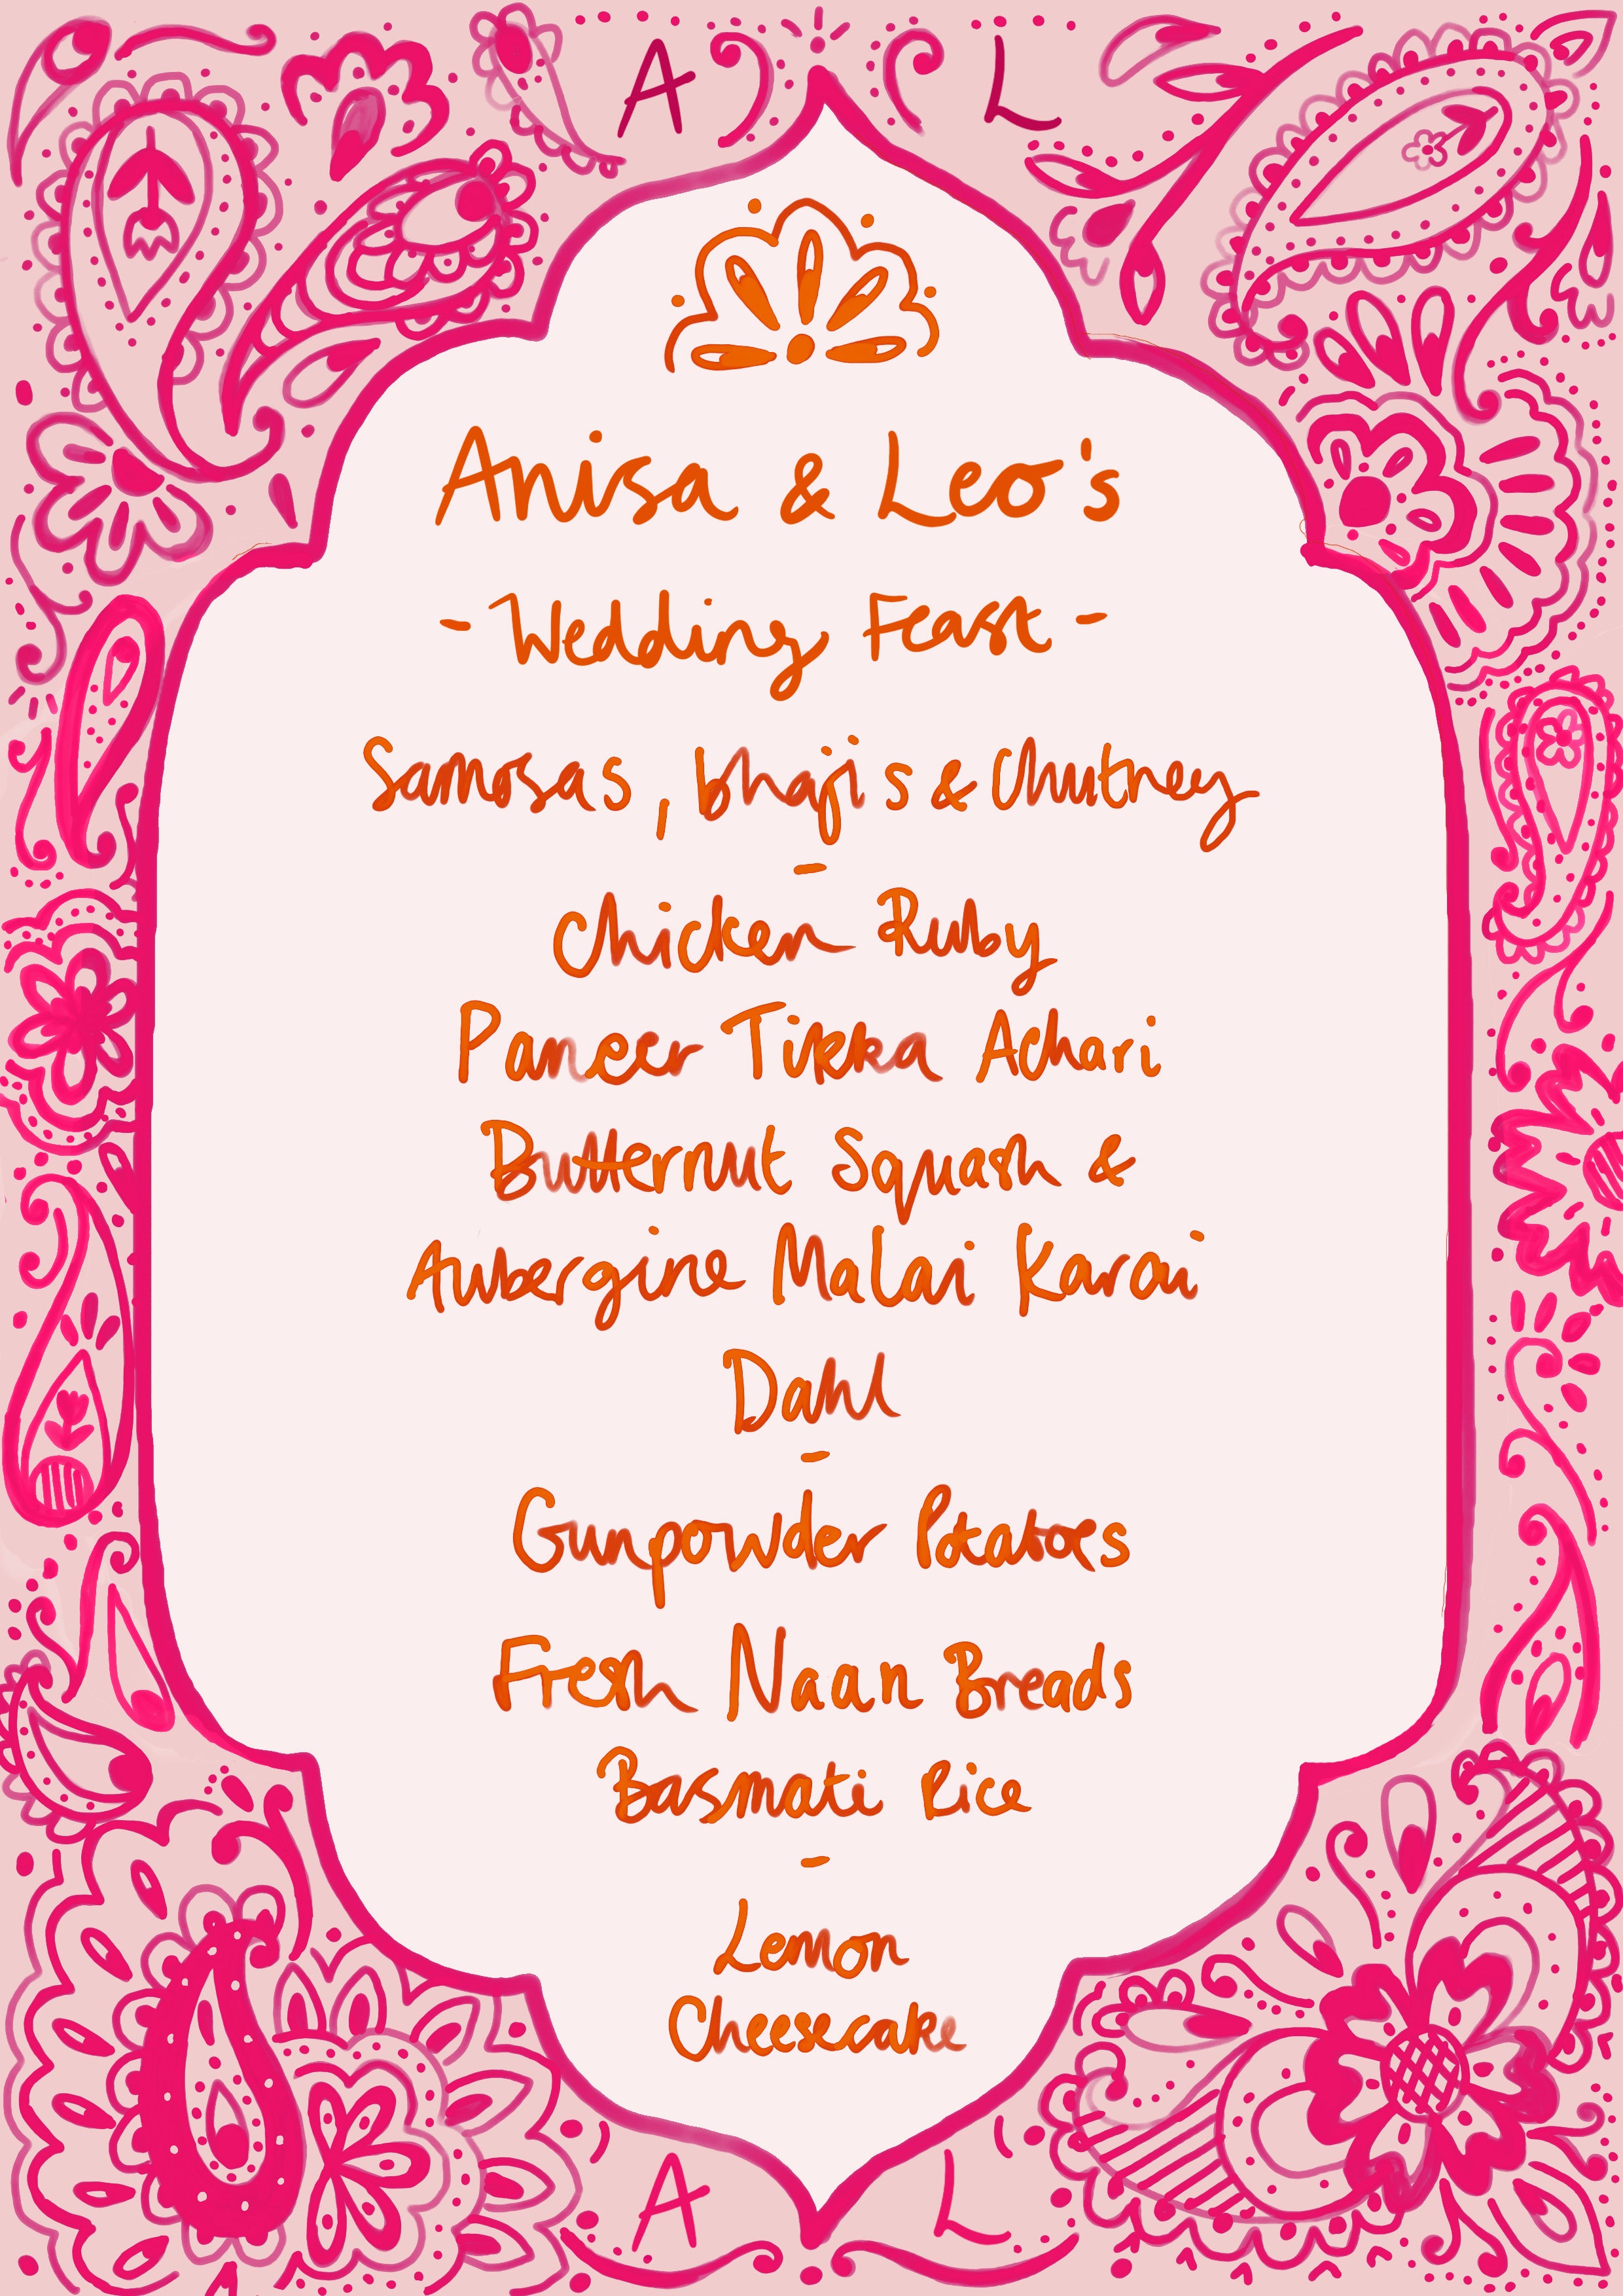 A L
Anisa & Leo's
- Wedding Feast -
Samosas, bhajis & Chutney
-
Chicken Ruby
Paneer Tikka Achari
Butternut Squash &
Aubergine Malai Karai
Dahl
-
Gunpowder Potatoes
Fresh Naan Breads
Basmati Rice
-
Lemon
Cheesecake
A L